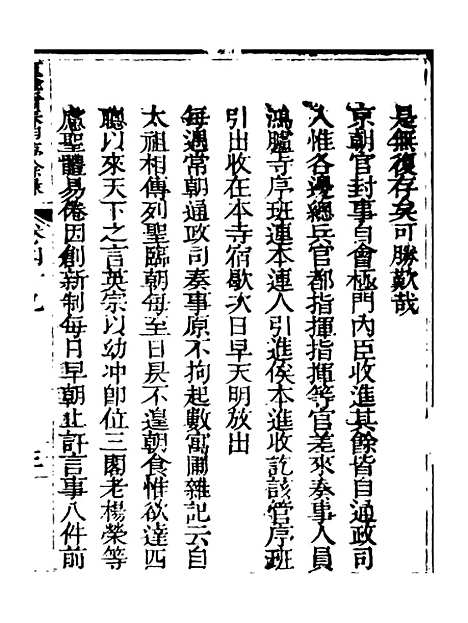 是無復存矣可勝歎哉
京朝官封事自會極門內臣收進其餘皆自通政司
入惟各邊總兵官都指揮指揮等官差來奏事人員
鴻臚寺序班連本連人引進俟本進收訖該管序班
引出收在本寺宿歇次日早天明放出
每遇常朝通政司奏事原不拘起數寓圃雜記云自
太祖相傳列聖臨朝每至日昃不遑朝食惟欲達四
聰以來天下之言英宗以幼冲卽位三閣老楊榮等
慮聖體易倦因創新制每日早朝止許言事八件前